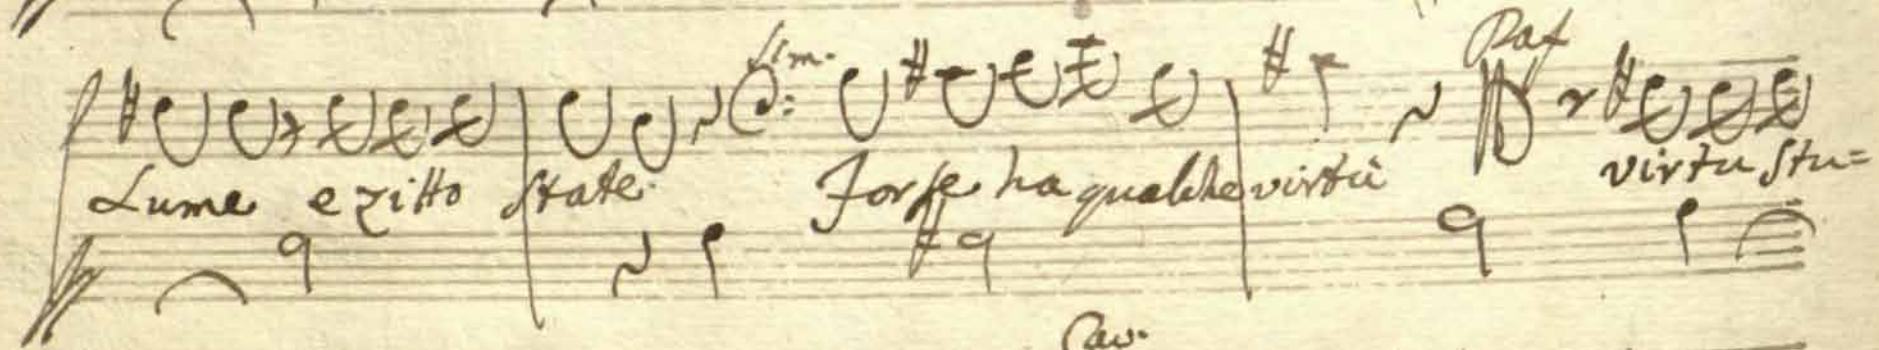 Sim. Paf
Lume e zitto state. Forse ha qualche virtù virtu stu=
Cav.